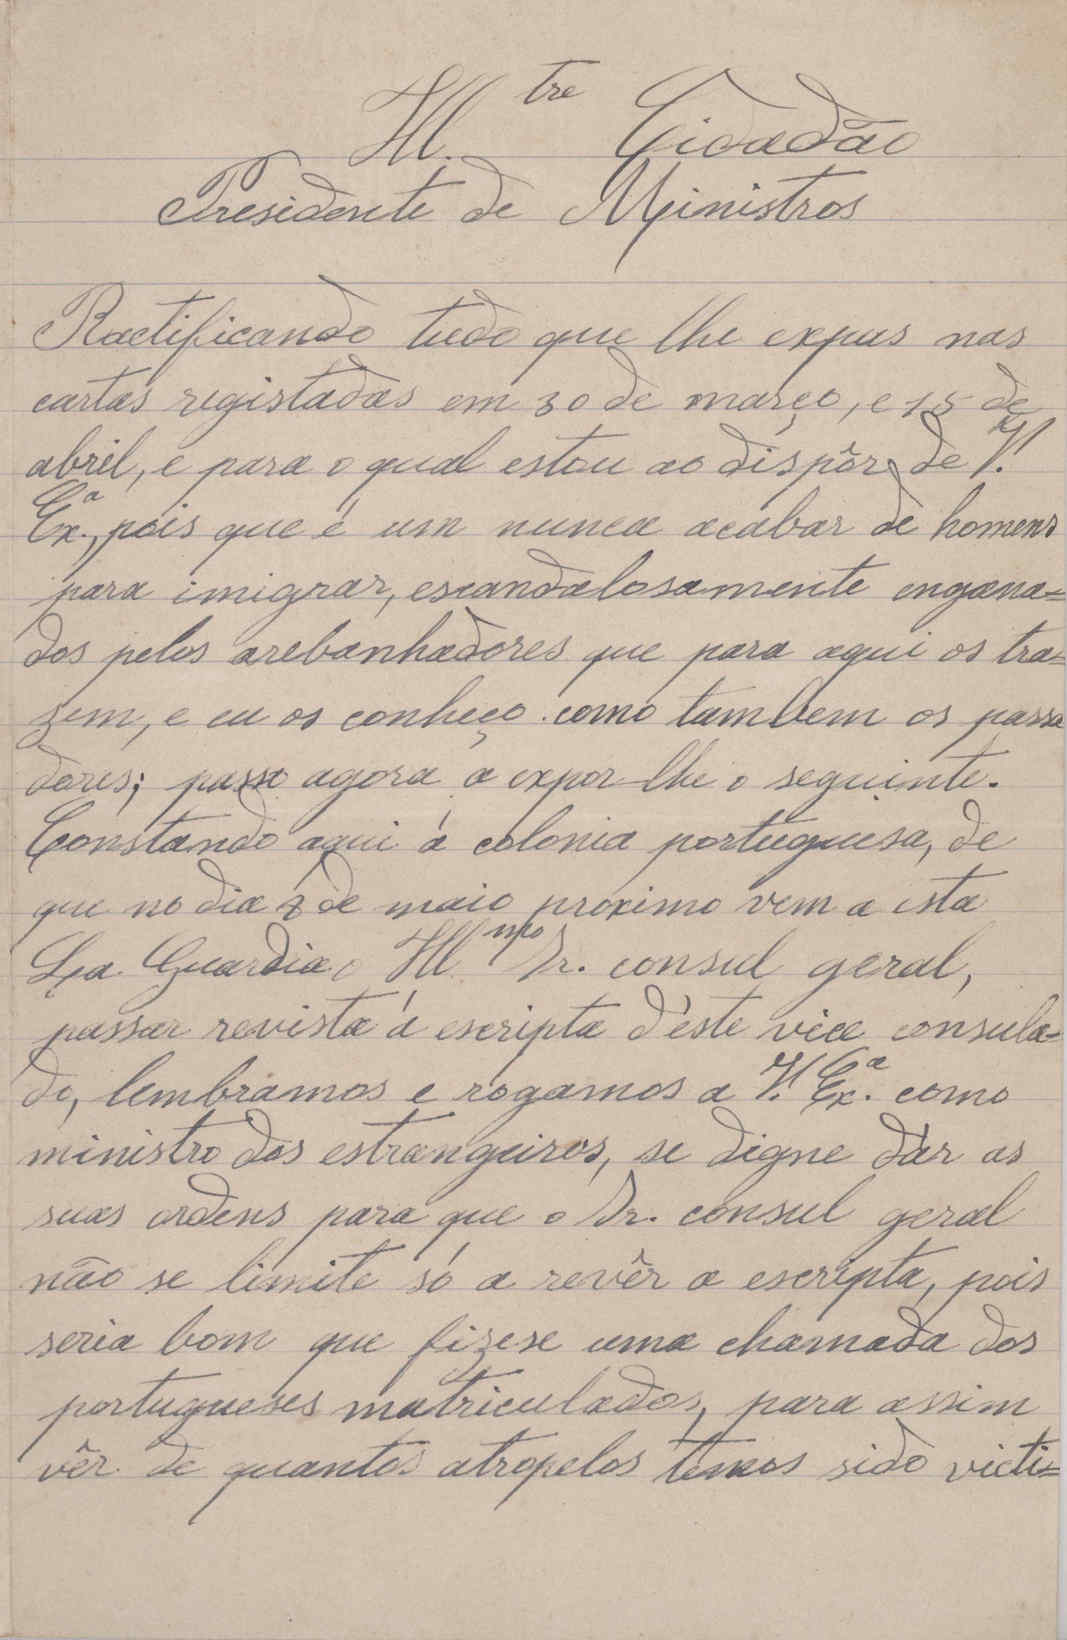 Ill.tre Cidadão
Presidente de Ministros
Ractificando tudo que lhe expus nas
cartas registadas em 30 de março, e 15 de
abril, e para o qual estou ao dispôr de V.
Ex.ª, pois que é um nunca acabar de homens
para imigrar, escandalosamente engana=
dos pelos arebanhadores que para aqui os tra=
zem, e eu os conheço como tambem os passa
dores; passo agora a expor-lhe o seguinte.
Constando aqui á colonia portuguesa, de
que no dia de maio proximo vem a esta
La Guardia o Ill.mo Sr. consul geral,
passar revista á escripta d'éste vice consula=
do, lembramos e rogamos a V. Ex.ª como
ministro dos estrangeiros, se digne dár as
suas ordens para que o Sr. consul geral
não se limite só a revêr a escripta, pois
seria bom que fizese uma chamada dos
portugueses matriculados, para assim
vêr de quantos atropelos temos sido victi=